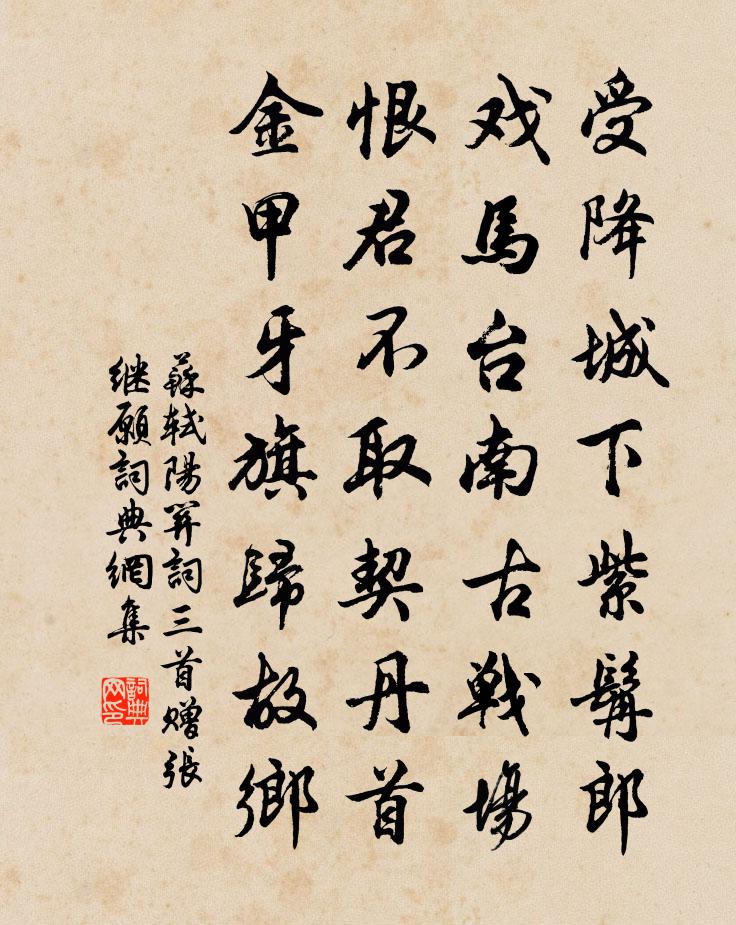 受降城下紫髯郎
戏馬台南古戦場
恨君不取契丹首
金甲牙旗歸故鄉
蘇軾陽關詞三首贈張
继願詞典網集
詞典网印